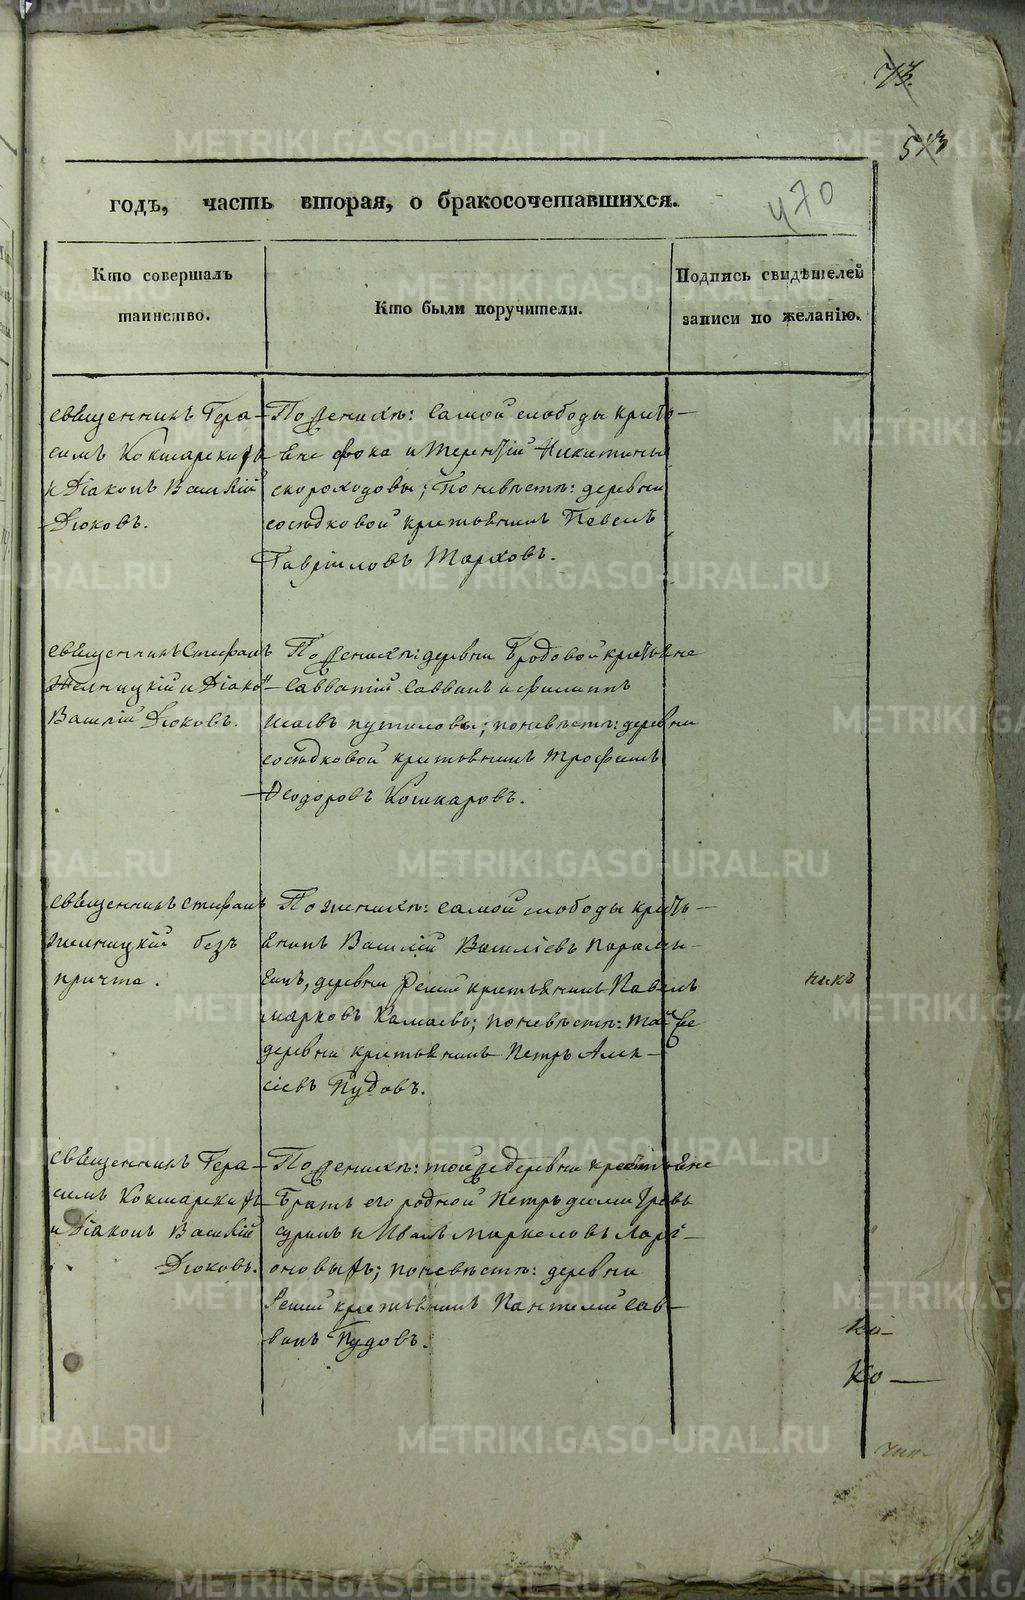 513
470
годъ, часть вторая, о бракосочетавшихся.
Кто совершалъ
таинство.
Кто были поручители.
Подпись свидѣтелей
записи по желанію.
священникъ Гера-
симъ Кокшарскихъ
и Діаконъ Василій
Дюковъ.
По женихѣ: самой слободы кресть-
яне Фока и Терентій Никитины
скороходовы; по невѣстѣ: деревни
сосѣдковой крестьянинъ Павелъ
Гавріиловъ Тарховъ.
священникъ Стефанъ
и Діаконъ
Василій Дюковъ.
По женихѣ: деревни Бродовой крестьяне
Савватій Саввинъ и Филиппъ
Исаевъ путиловы; по невѣстѣ: деревни
сосѣдковой крестьянинъ Трофимъ
Ѳеодоровъ Кошкаровъ.
священникъ стефанъ
безъ
причта.
По женихѣ: самой слободы кресть-
янинъ Василій Василіевъ
деревни крестьянинъ Павелъ
Марковъ Камаевъ; по невѣстѣ: той же
деревни крестьянинъ Петръ Алек-
сіевъ Пудовъ.
никъ
священникъ Гера-
симъ Кокшарскихъ
и Діаконъ Василій
Дюковъ.
По женихѣ: той же деревни крестьяне
Братъ его родной Петръ Димитріевъ
и Иванъ Маркеловъ Ларі-
оновыхъ; по невѣстѣ: деревни
крестьянинъ Пантелій Сав-
винъ Пудовъ.
Ко-
Ко-
METRIKI.GASO-URAL.RU